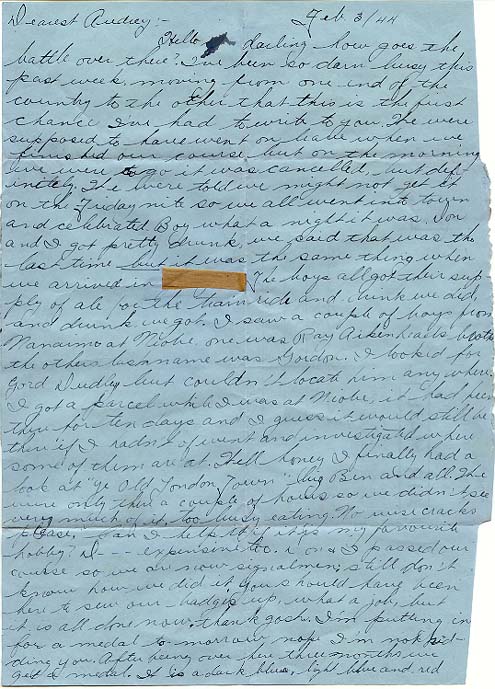 Dearest Audrey:- Feb. 3/44
Hello darling how goes the
battle over there? I've been so darn busy this
past week, moving from one end of the
country to the other that this is the first
chance I've had to write to you. We were
supposed to have went on leave when we
finished our course, but on the morning
we were to go it was cancelled, but def-
initely. We were told we might not get it
on the Friday nite so we all went into town
and celebrated Boy what a night it was, Von
and I got pretty drunk, we said that was the
last time but it was the same thing when
we arrived in The boys all got their sup-
ply of ale for the train ride and drink we did,
and drunk we got. I saw a couple of boys from
Nanaimo at one was Ray Aikenheads
the others his name was Gordon. I looked for
Gord Dudley but couldn't locate him any where
I got a parcel while I was at it had been
there for ten days and I guess it would still be
there if I hadn't of went and investigated where
some of them are at. Well honey I finally had a
look at "ye Old London Town" big Ben and all. We
were only there a couple of hours so we didn't see
very much of it, too busy eating. No wise cracks
please. Can I help it if it's my favourite
hobby. D--- expensive too. Von & I passed our
course so we are now signalmen, still don't
know how we did it. You should have been
here to sew our badges up, what a job, but
it is all done now, thank gosh. I'm putting in
for a medal to-morrow, nope I'm not kid-
ding you. After being over here three months we
get a medal. It is a dark blue, light blue and red